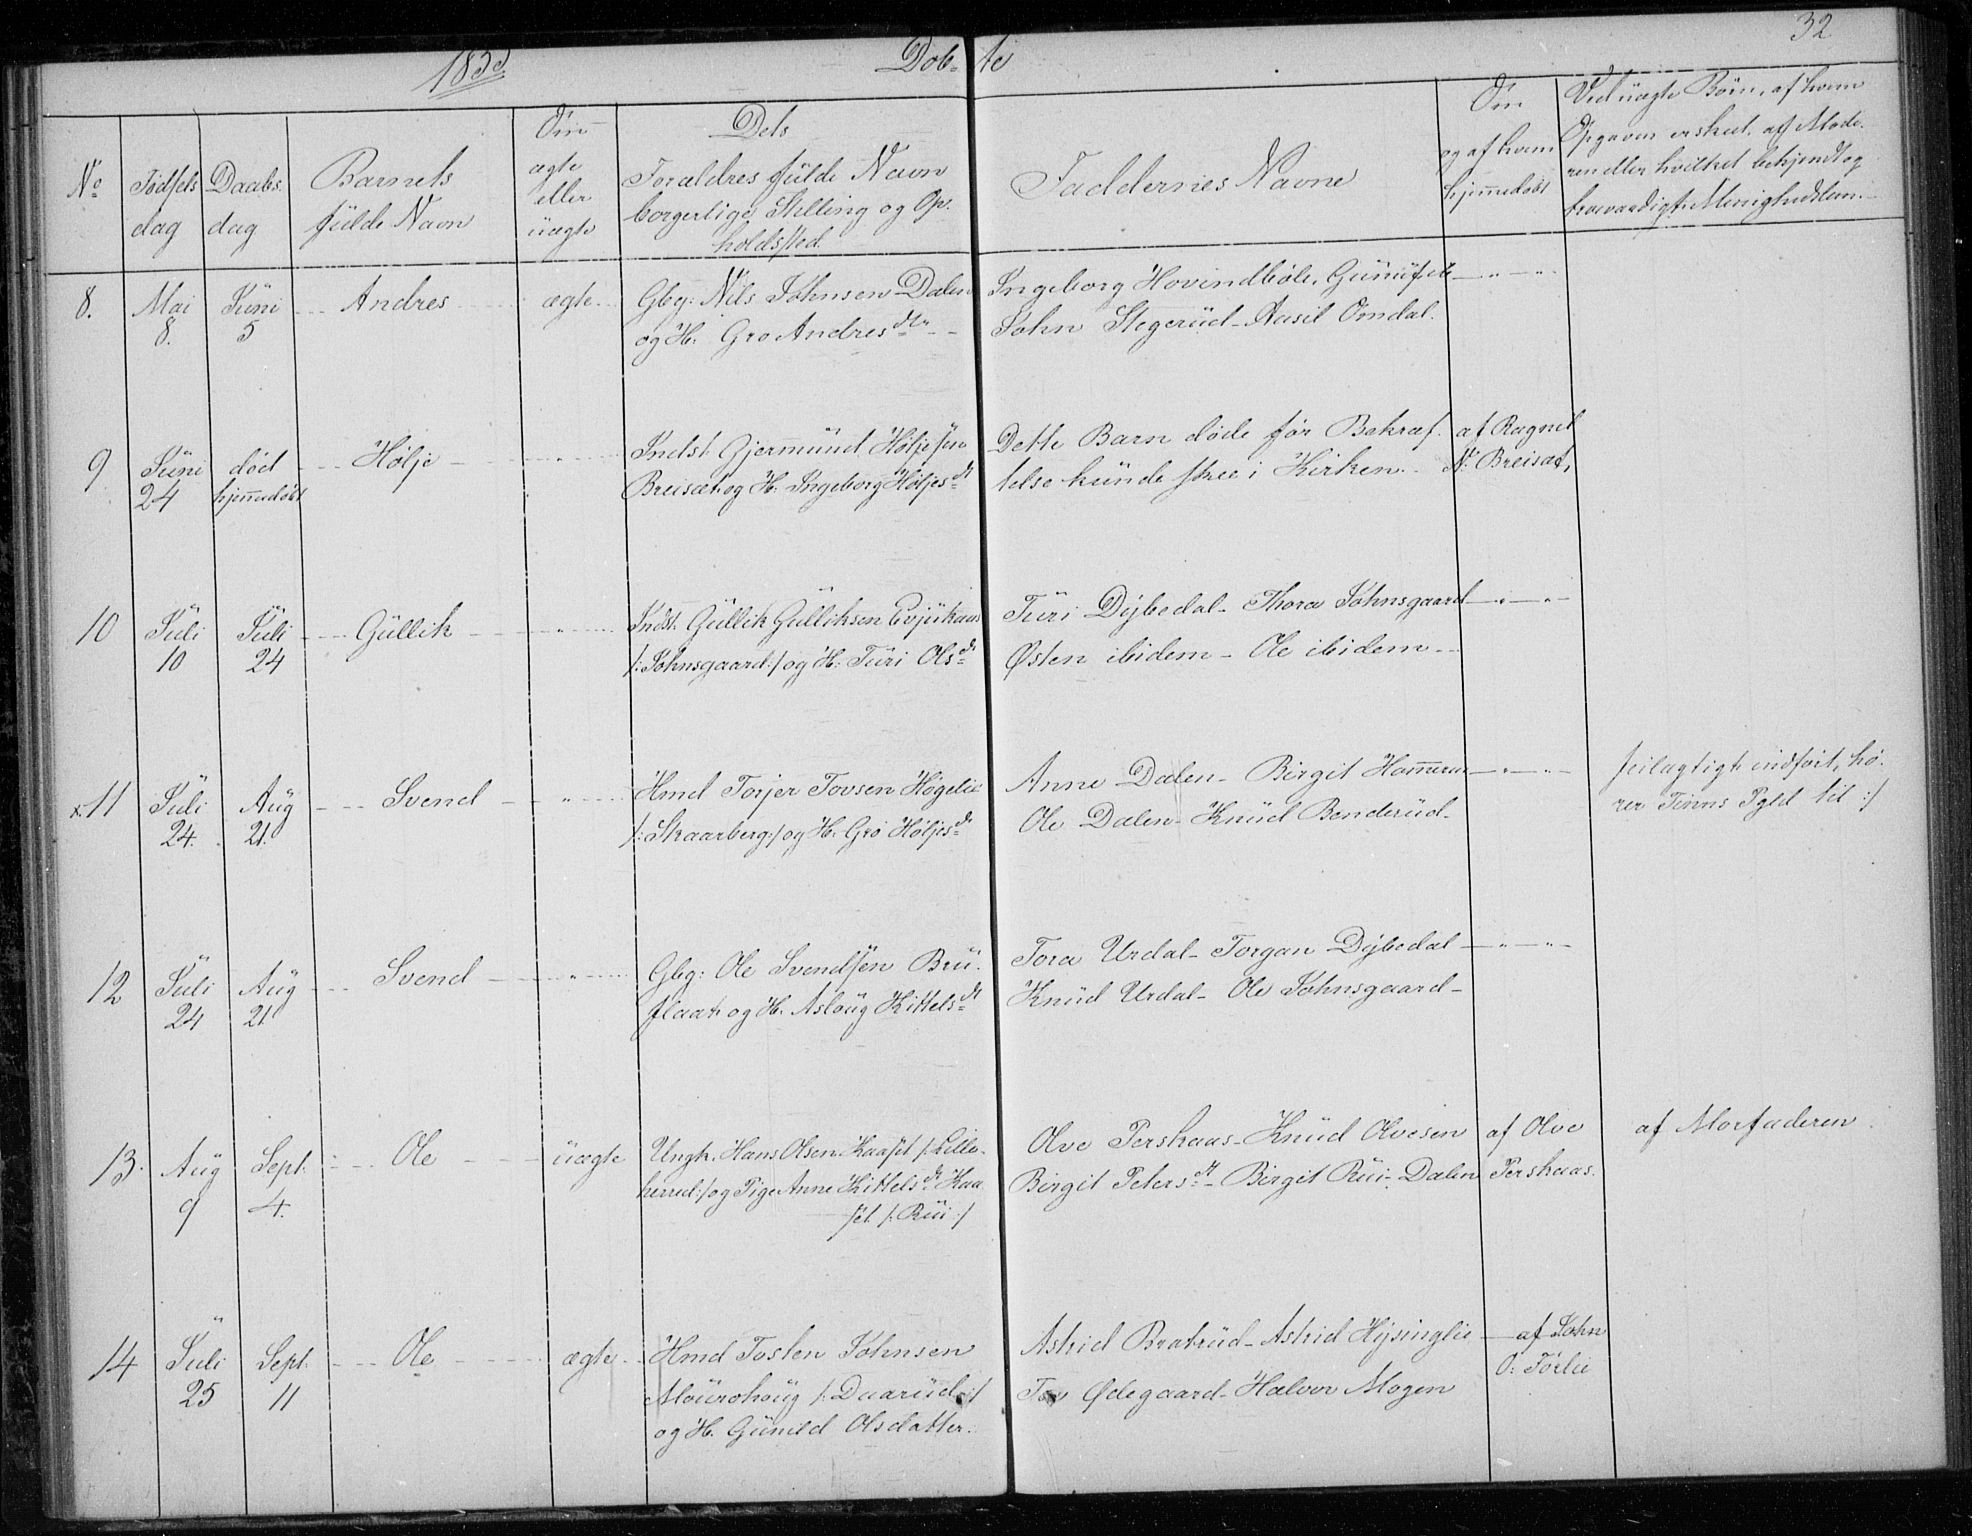 32
1853 Döb- te
No
Fødsels
dag
Daabs
dag
Barnets
fulde Navn
Om
ægte
eller
uægte
Dets
Forældres fulde Navn
borgerlige Stilling og Op-
holdssted
Faddernes Navne
Om
og af hvem
hjemmedøbt
Ved uægte Børn, af hvem
Opgaven er skeet, af Mode-
ren eller hvilket bekjendt og
troværdigt Menighedslem.
8. Mai 8. Juni 5 Andres ægte
Gbg: Nils Johnsen Dalen
og H. Gro Andresdtr
Ingeborg Hovindbøle, Gunuf ib
John Stegerud - Aasil Omdal.
9 Juni 24 død hjemmedøbt Hølje "
Indst. Gjermund Høljesen
Breisæt og H. Ingeborg Høljesdt
Dette Barn døde før Bekræf-
telse kunde skee i Kirken.
af Ragnil
N. Breisæt,
10 Juli 10 Juli 24 Gullik "
Indst. Gullik Gulliksen Evjukaas
/: Johnsgaard :/ og H. Turi Olsdt
Turi Dybedal - Thora Johnsgaard
Østen ibidem - Ole ibidem -
x 11 Juli 24. Aug 21. Svend "
Hmd Torjer Tovsen Høgelie
/: Skaarberg :/ og H. Gro Høljesdt
Anne Dalen - Birgit Hammeren
Ole Dalen - Knud Benderud -
feilagtigt indført, hø-
rer Tinns Pgld til :/
12 Juli 24 Aug 21. Svend "
Gbg: Ole Svendsen Bru-
flaat og H. Aslaug Kittelsdt
Tora Urdal - Torgon Dybedal
Knud Urdal - Ole Johnsgaard -
13. Aug 9 Sept. 4. Ole uægte
Ungk. Hans Olsen Kaaset /: Lille-
herred :/ og Pige Anne Kittelsdt Kaa-
set /: Rui :/
Olve Perskaas - Knud Olvesen
Birgit Petersdt - Birgit Rui - Dalen
af Olve
Perskaas.
af Morfaderen
14 Juli 25 Sept. 11 Ole ægte
Hmd Tosten Johnsen
Mourohoug /: Daarud :/
og H. Gunild Olsdatter.
Astrid Bratrud - Astrid Hysinglie
Tov Ødegaard - Halvor Mogen
af John
O. Førlie